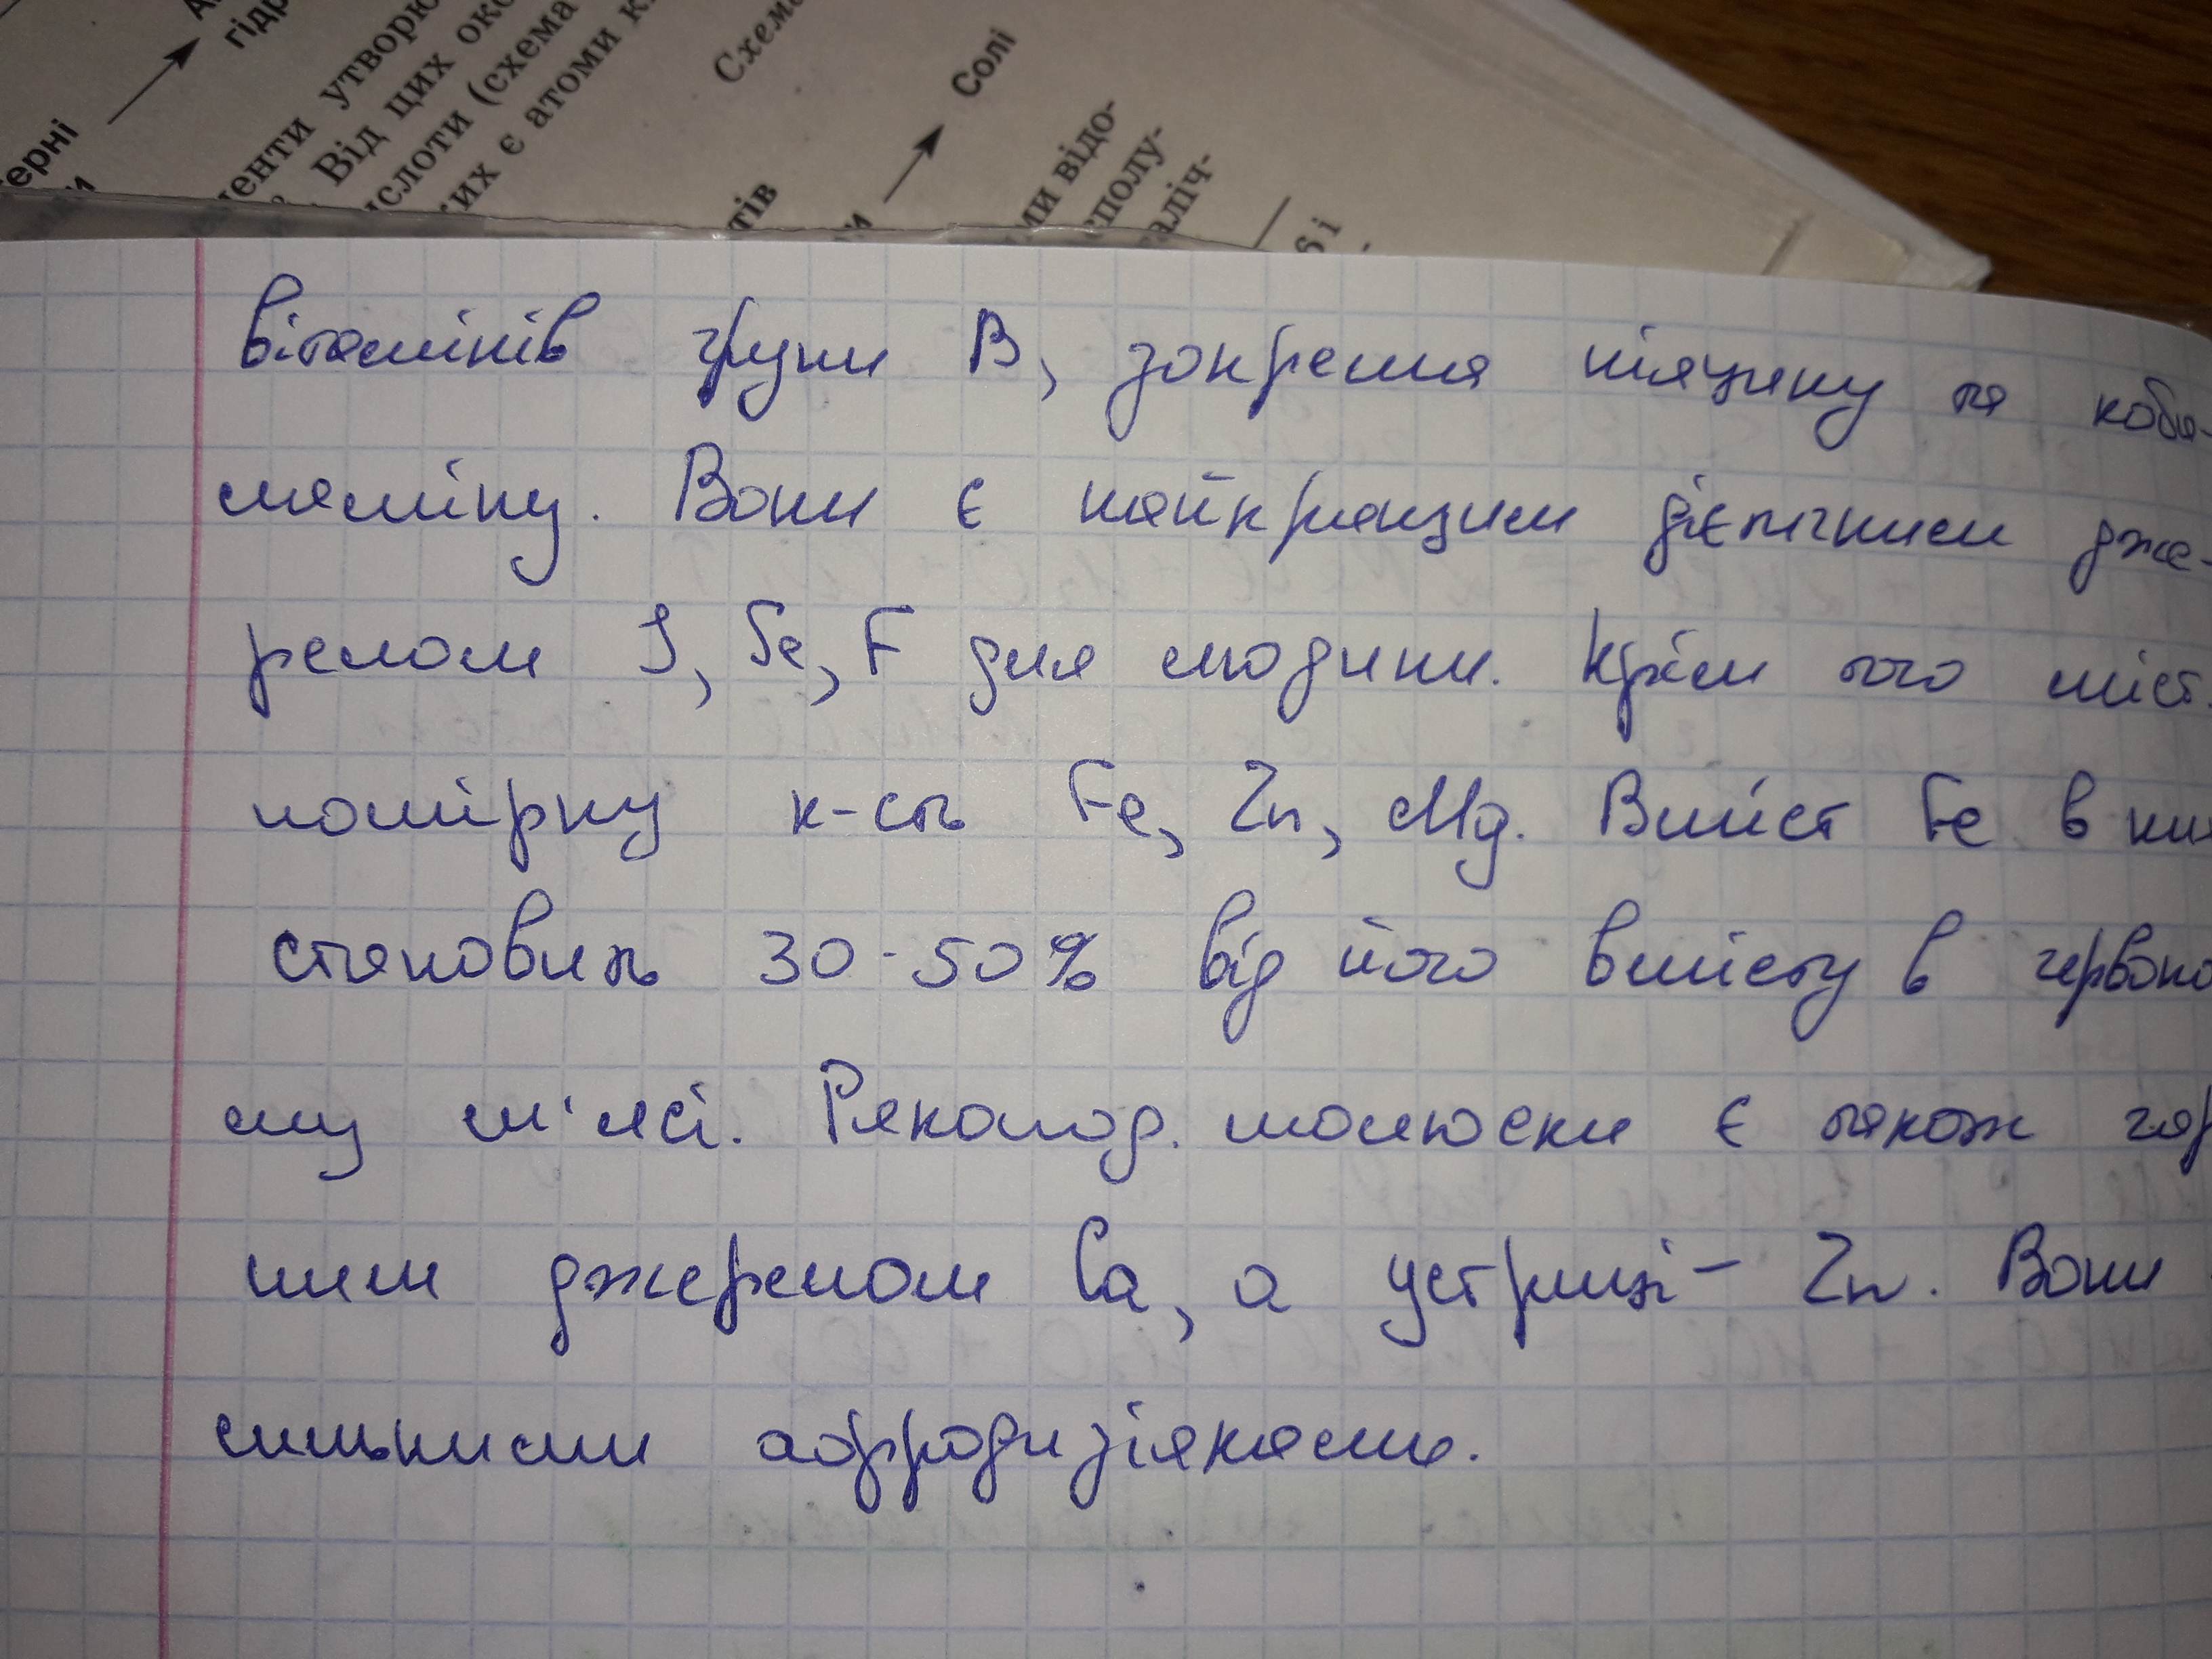 гідр
ерні
менти утворю
Від цих окс
ислоти (схема
ких є атоми к
Схема
Солі
тів
ми відо-
сполу-
аліч-
6 і
вітамінів групи В, зокрема ніацину та коба-
ламіну. Вони є найкращим дієтичним дже-
релом I, Se, F для людини. Крім того міст.
помірну к-сть Fe, Zn, Mg. Вміст Fe в них
становить 30-50% від його вмісту в червоно
му м'ясі. Ракопод. молюски є також гар
ним джерелом Ca, а устриці - Zn. Вони
сильними афродизіаками.